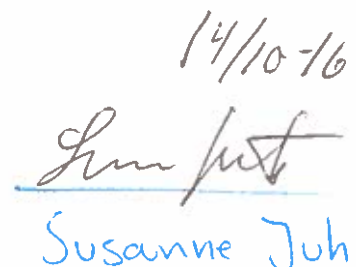 14/10-16
Susanne Juh